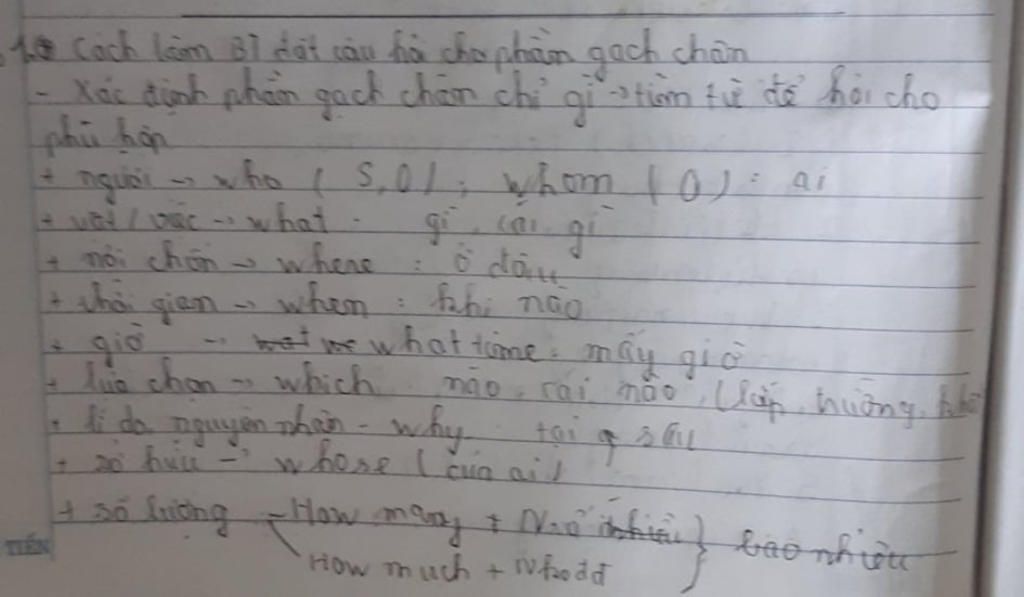 1. Cách làm BT đặt câu hỏi cho phần gạch chân
- Xác định phần gạch chân chỉ gì → tìm từ để hỏi cho
phù hợp
+ người → who (S,O), whom (O) : ai
+ vật / việc → what : gì, cái gì
+ nơi chốn → where : ở đâu
+ thời gian → when : khi nào
+ giờ → what time : mấy giờ
+ lựa chọn → which nào, cái nào, (lớp, hướng,
+ lí do nguyên nhân - why tại sao
+ sở hữu → whose (của ai)
+ số lượng How many + N số nhiều } bao nhiêu
How much + N k đđ
TIẾN